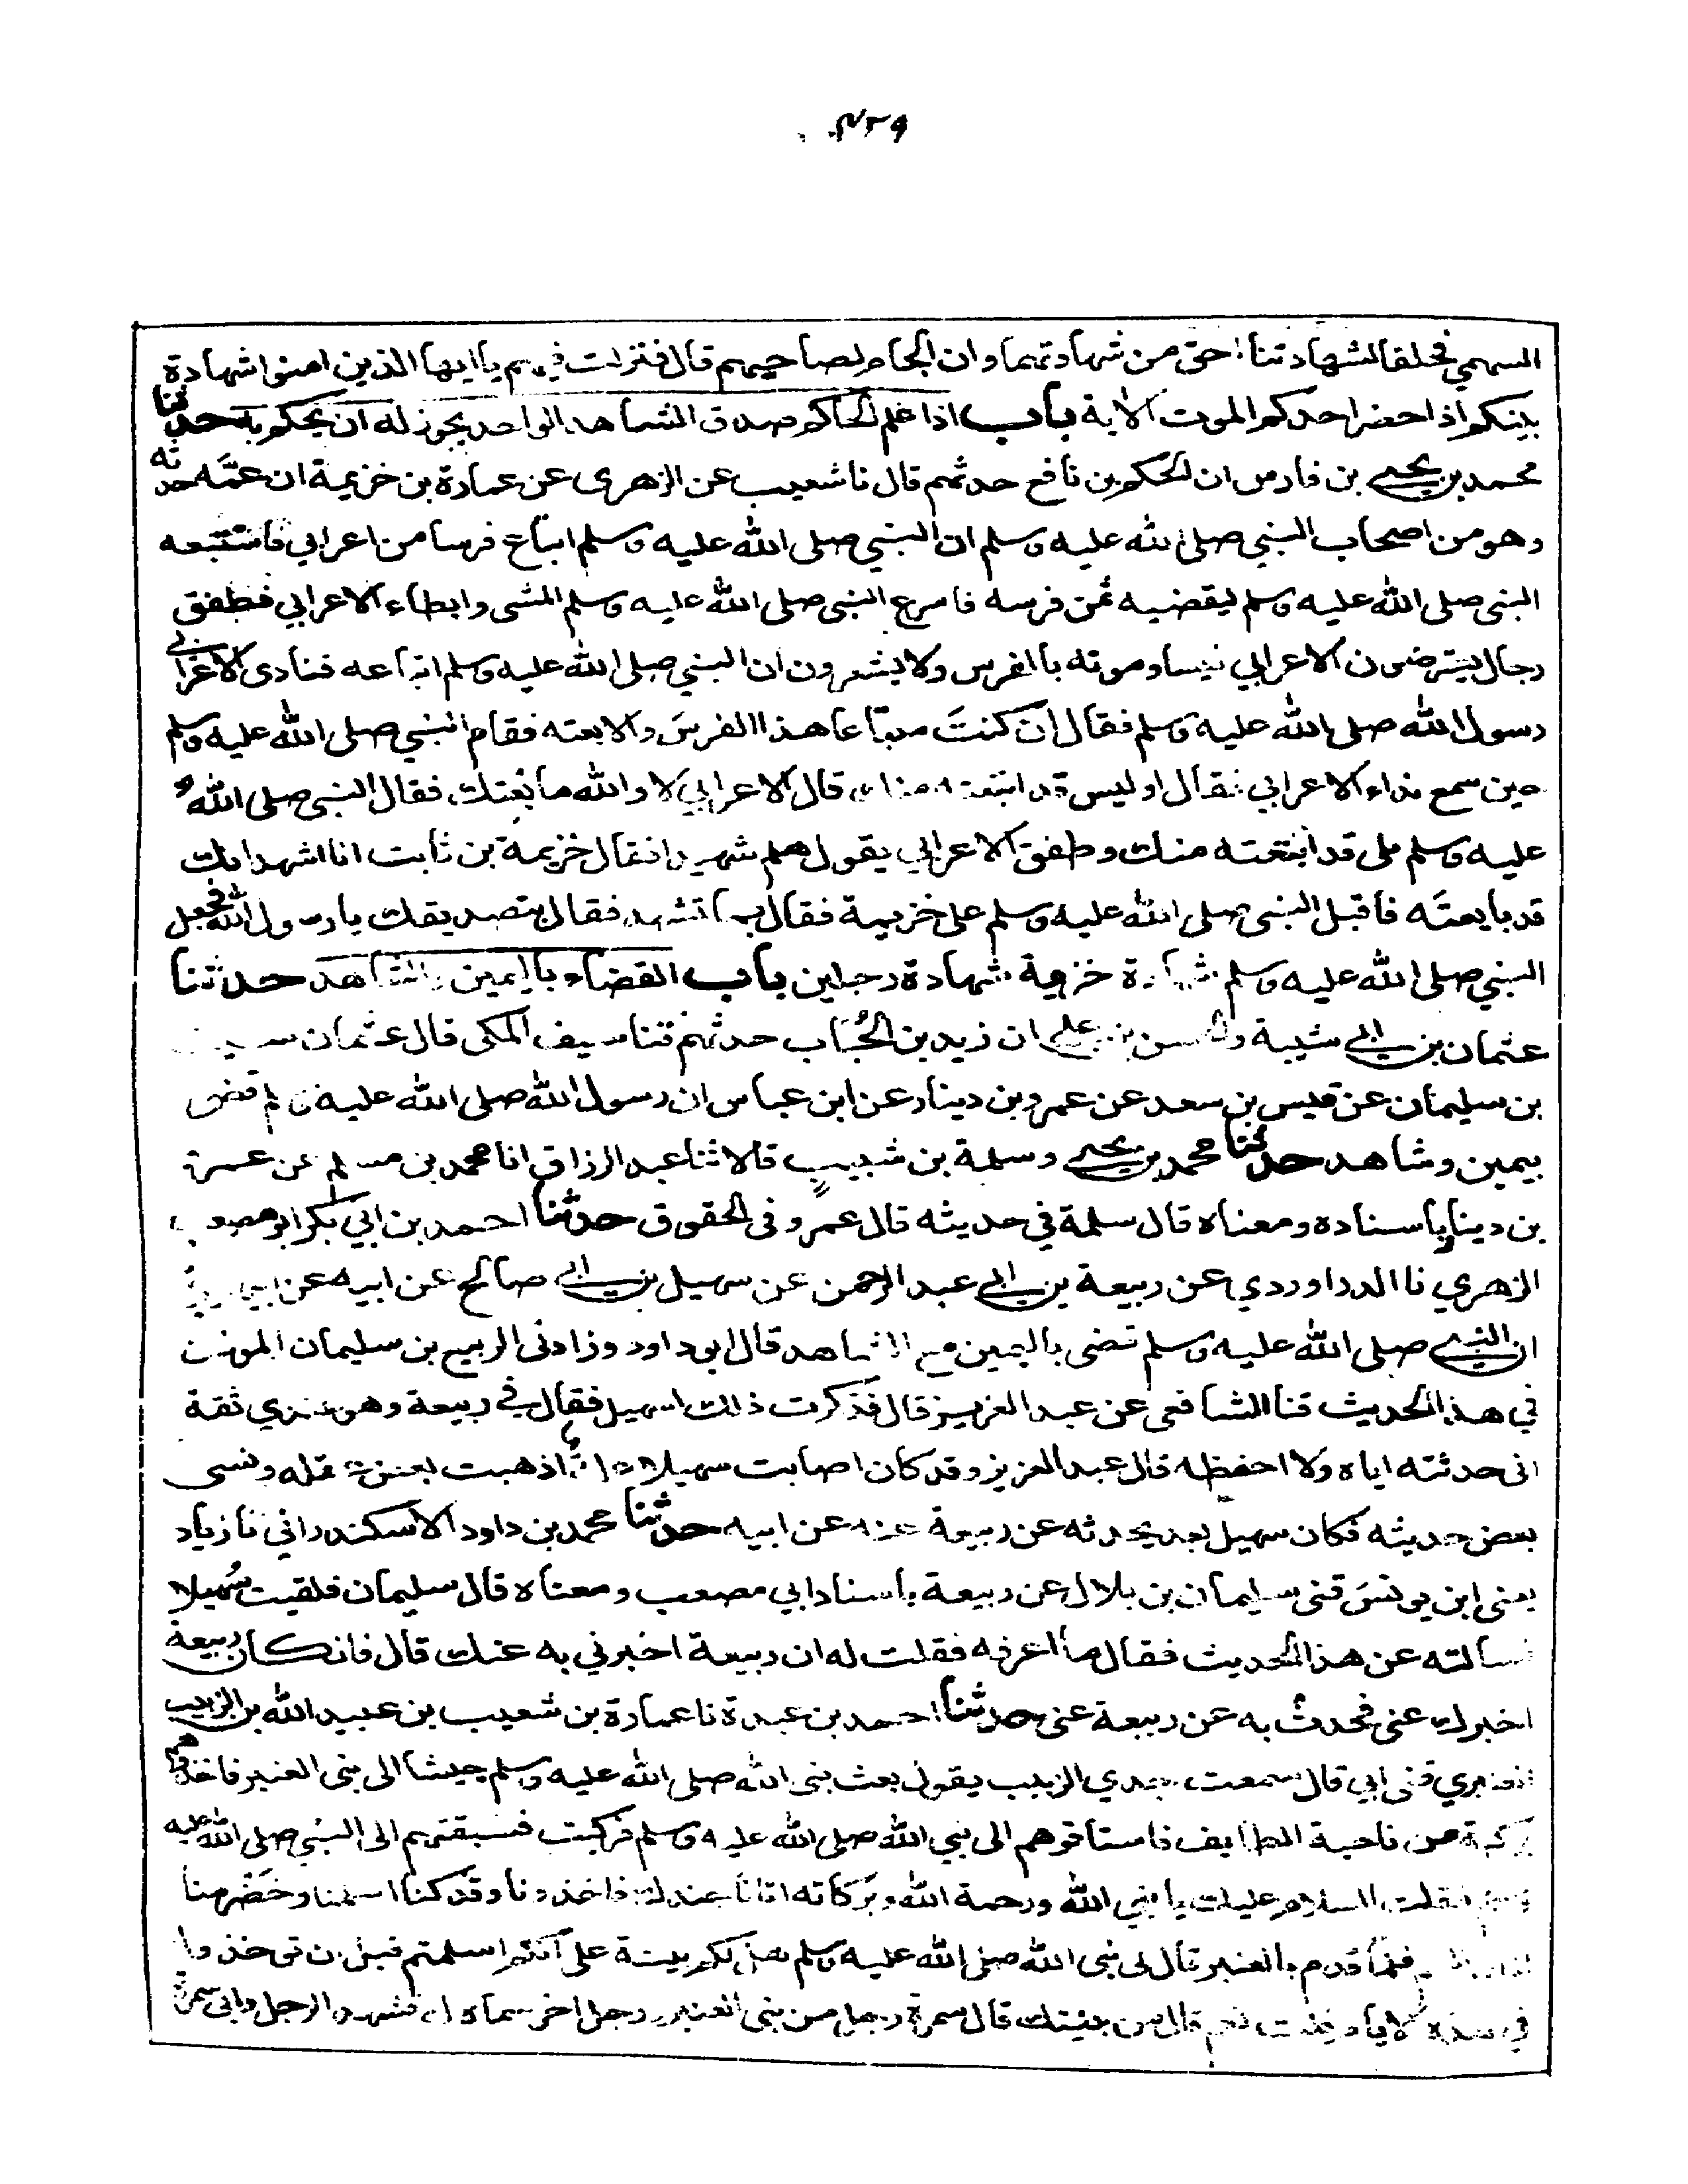 ٤٣٩
السهمي فحلفا لشهادتنا احق من شهادتهما وان الجام لصاحبهم قال فنزلت فيهم يا ايها الذين امنوا شهادة
بينكم اذا حضر احدكم الموت الاية باب اذا علم الحاكم صدق الشاهد الواحد يجوز له ان يحكم به حدثنا
محمد بن يحيى بن فارس ان الحكم بن نافع حدثهم قال نا شعيب عن الزهري عن عمارة بن خزيمة ان عمَّه حدثه
وهو من اصحاب النبي صلى الله عليه وسلم ان النبي صلى الله عليه وسلم ابتاع فرسا من اعرابي فاستتبعه
النبي صلى الله عليه وسلم ليقضيه ثمن فرسه فاسرع النبي صلى الله عليه وسلم المشى وابطاء الاعرابي فطفق
رجال يعترضون الاعرابي فيساومونه بالفرس ولا يشعرون ان النبي صلى الله عليه وسلم ابتاعه فنادى الاعرابي
رسول الله صلى الله عليه وسلم فقال ان كنتَ مبتاعا هذا الفرسَ والا بعته فقام النبي صلى الله عليه وسلم
حين سمع نداء الاعرابي فقال اوليس قد ابتعته منك قال الاعرابي لا والله ما بعتك فقال النبي صلى الله
عليه وسلم بلى قد ابتعته منك وطفق الاعرابي يقول هلم شهيدا فقال خزيمة بن ثابت انا اشهد انك
قد بايعتَه فاقبل النبي صلى الله عليه وسلم على خزيمة فقال بما تشهد فقال بتصديقك يا رسول الله فجعل
النبي صلى الله عليه وسلم شهادة خزيمة شهادة رجلين باب القضاء باليمين والشاهد حدثنا
عثمان بن ابي شيبة والحسن بن علي ان زيد بن الحُباب حدثهم قثنا سيف المكي قال عثمان سيف
بن سليمان عن قيس بن سعد عن عمرو بن دينار عن ابن عباس ان رسول الله صلى الله عليه وسلم قضى
بيمين وشاهد حدثنا محمد بن يحيى وسلمة بن شبيب قالا ثنا عبد الرزاق انا محمد بن مسلم عن عمرو
بن دينار باسناده ومعناه قال سلمة في حديثه قال عمرو في الحقوق حدثنا احمد بن ابي بكر ابو مصعب
الزهري نا الدراوردي عن ربيعة بن ابي عبد الرحمن عن سهيل بن ابي صالح عن ابيه عن ابي هريرة
ان النبي صلى الله عليه وسلم قضى باليمين مع الشاهد قال ابو داود وزادني الربيع بن سليمان المؤذن
في هذا الحديث قثنا الشافعي عن عبد العزيز قال فذكرت ذلك لسهيل فقال في ربيعة وهو عندي ثقة
اني حدثته اياه ولا احفظه قال عبد العزيز وقد كان اصابت سهيلا علة اذهبت بعض عقله ونسى
بعض حديثه فكان سهيل بعد يحدثه عن ربيعة عنه عن ابيه حدثنا محمد بن داود الاسكندراني نا زياد
يعني ابن يونسَ قثنى سليمان بن بلال عن ربيعة باسناد ابي مصعب ومعناه قال سليمان فلقيت سُهيلا
فسالته عن هذا الحديث فقال ما اعرفه فقلت له ان ربيعة اخبرني به عنك قال فان كان ربيعة
اخبرك عني فحدث به عن ربيعة عني حدثنا احمد بن عبدة نا عمارة بن شعيب بن عبيد الله بن الزبيب
العنبري قثنى ابي قال سمعت جدي الزبيب يقول بعث نبي الله صلى الله عليه وسلم جيشا الى بني العنبر فاخذوهم
بركبة من ناحية الطايف فاستاقوهم الى نبي الله صلى الله عليه وسلم فركبت فسبقتهم الى النبي صلى الله عليه
وسلم فقلت السلام عليك يا نبي الله ورحمة الله وبركاته اتانا جندك فاخذونا وقد كنا اسلمنا وخَضْرمنا
فلما قدم بالعنبر قال لي نبي الله صلى الله عليه وسلم هل لكم بينة على انكم اسلمتم قبل ان توخذوا
في هذه الايام قلت نعم قال من بينتك قال سمرة رجل من بني العنبر ورجل اخر سماه له فشهد الرجل وابى سمرة